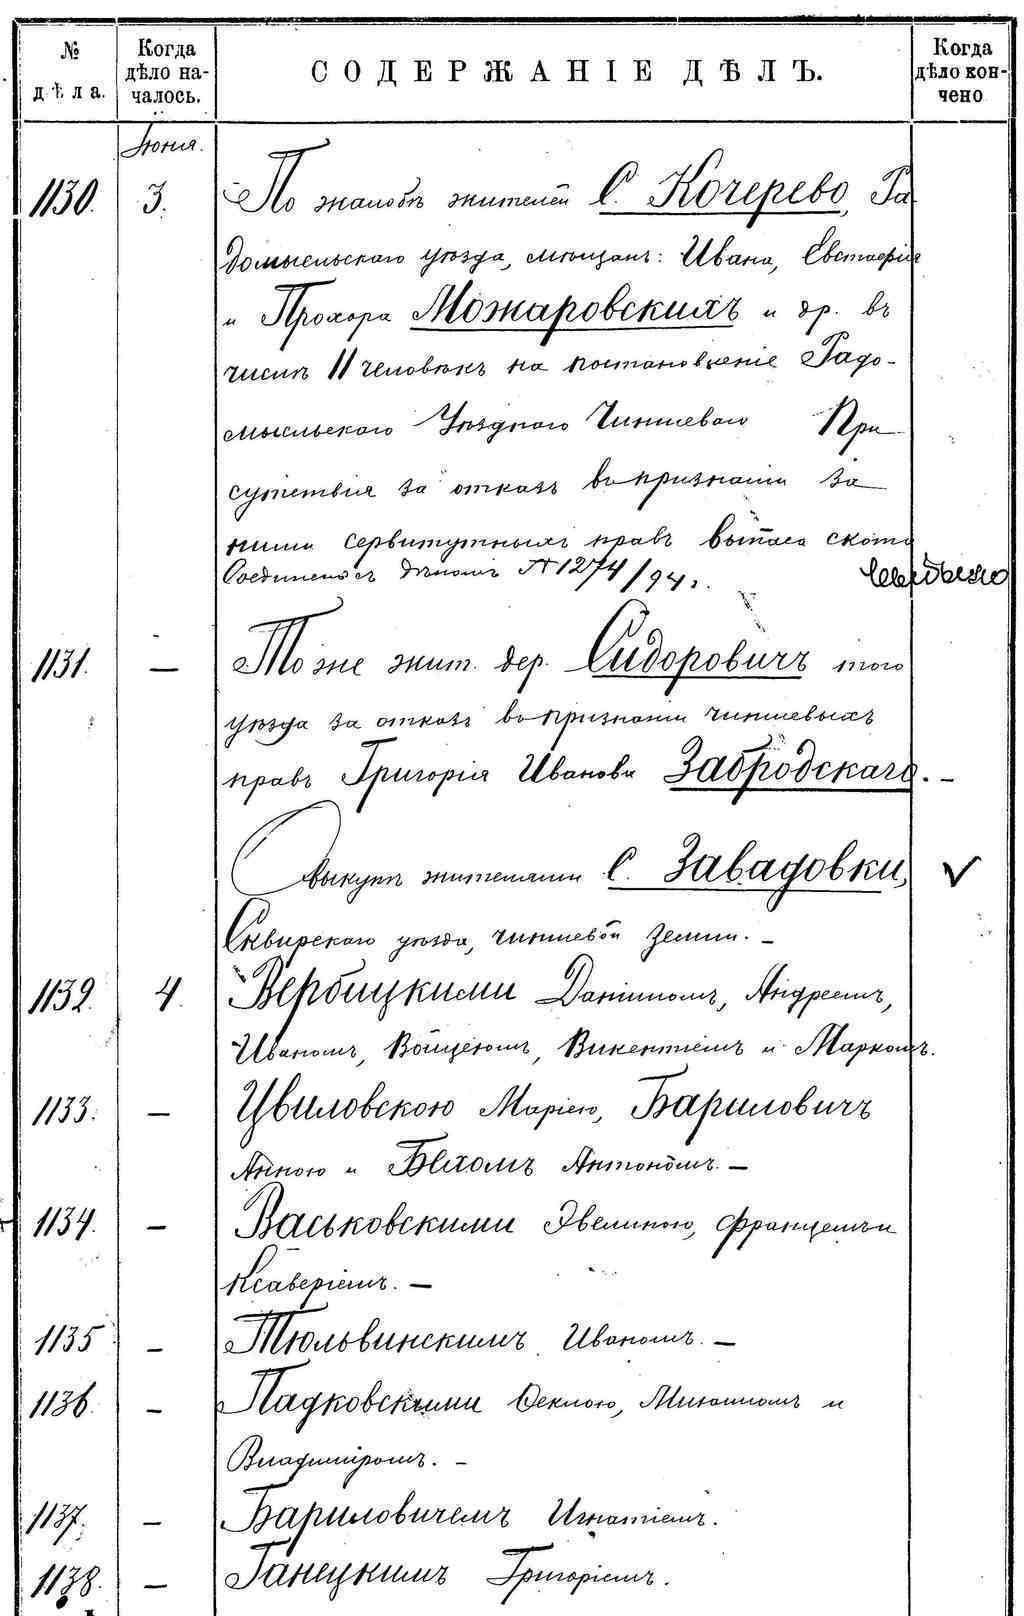 № дѣла.
Когда дѣло началось.
СОДЕРЖАНІЕ ДѢЛЪ.
Когда дѣло кончено
Іюня.
1130. 3. По жалобѣ жителей С. Кочерево, Ра-
домысльскаго уѣзда, мѣщанъ: Ивана, Евстафія
и Прохора Можаровскихъ и др. въ
числѣ 11 человѣкъ на постановленіе Радо-
мысльскаго Уѣзднаго Чиншеваго При-
сутствія за отказъ въ признаніи за
ними сервитутныхъ правъ выпаса скота
Соединено съ дѣломъ № 1274/94 г.
1131. — Тоже жит. дер. Сидоровичъ того
уѣзда за отказъ въ признаніи чиншевыхъ
правъ Григорія Иванова Забродскаго. —
О выкупѣ жителями С. Завадовки, ✓
Сквирскаго уѣзда, чиншевой земли. —
1132. 4. Вербицкими Даніиломъ, Андреемъ,
Иваномъ, Войцехомъ, Викентіемъ и Маркомъ.
1133. — Цвиловскою Маріею, Бариловичъ
Анною и Бехомъ Антономъ. —
1134. — Васьковскими Эвелиною, Францемъ и
Ксаверіемъ. —
1135 — Тюльвинскимъ Иваномъ. —
1136. — Падковскими Ѳеклою, Михаиломъ и
Владиміромъ. —
1137. — Бариловичемъ Игнатіемъ.
1138. — Ганецкимъ Григоріемъ.